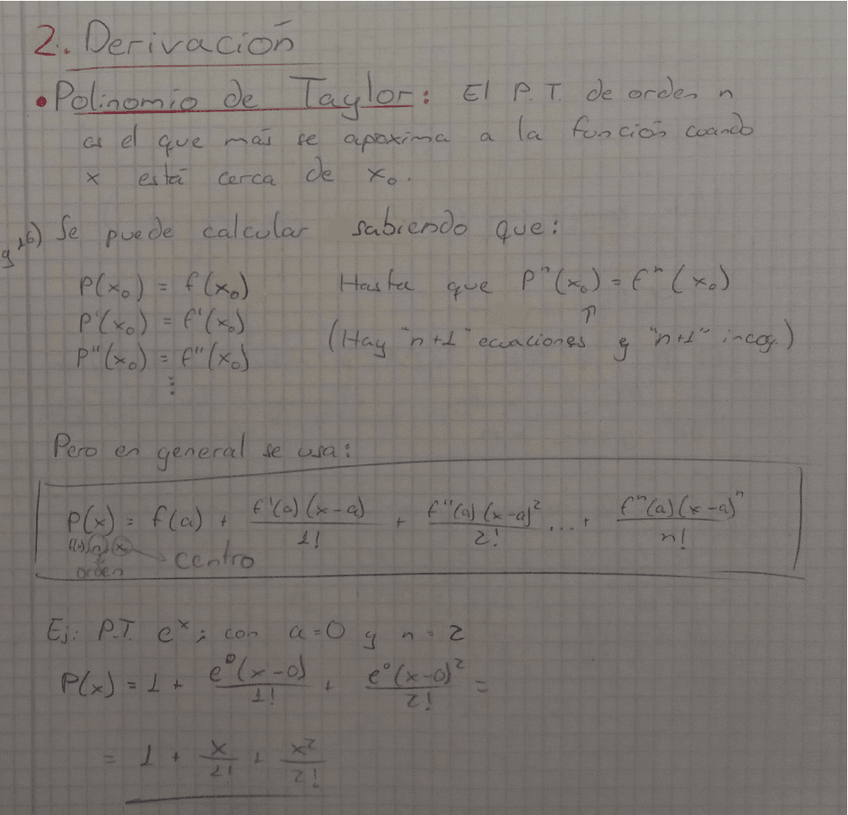 2. Derivación
• Polinomio de Taylor: El P.T. de orden n
es el que más se apoxima a la función cuando
x está cerca de x₀.
Se puede calcular sabiendo que:
P(x₀) = f(x₀) Hasta que Pⁿ(x₀) = fⁿ(x₀)
P'(x₀) = f'(x₀) ↑
P''(x₀) = f''(x₀) (Hay "n+1" ecuaciones y "n+1" incog.)
⋮
Pero en general se usa:
P(x) = f(a) + f'(a)(x-a)/1! + f''(a)(x-a)²/2! ... + fⁿ(a)(x-a)ⁿ/n!
→ centro
orden
Ej: P.T. eˣ; con a=0 y n=2
P(x) = 1 + e⁰(x-0)/1! + e⁰(x-0)²/2! =
= 1 + x/1! + x²/2!